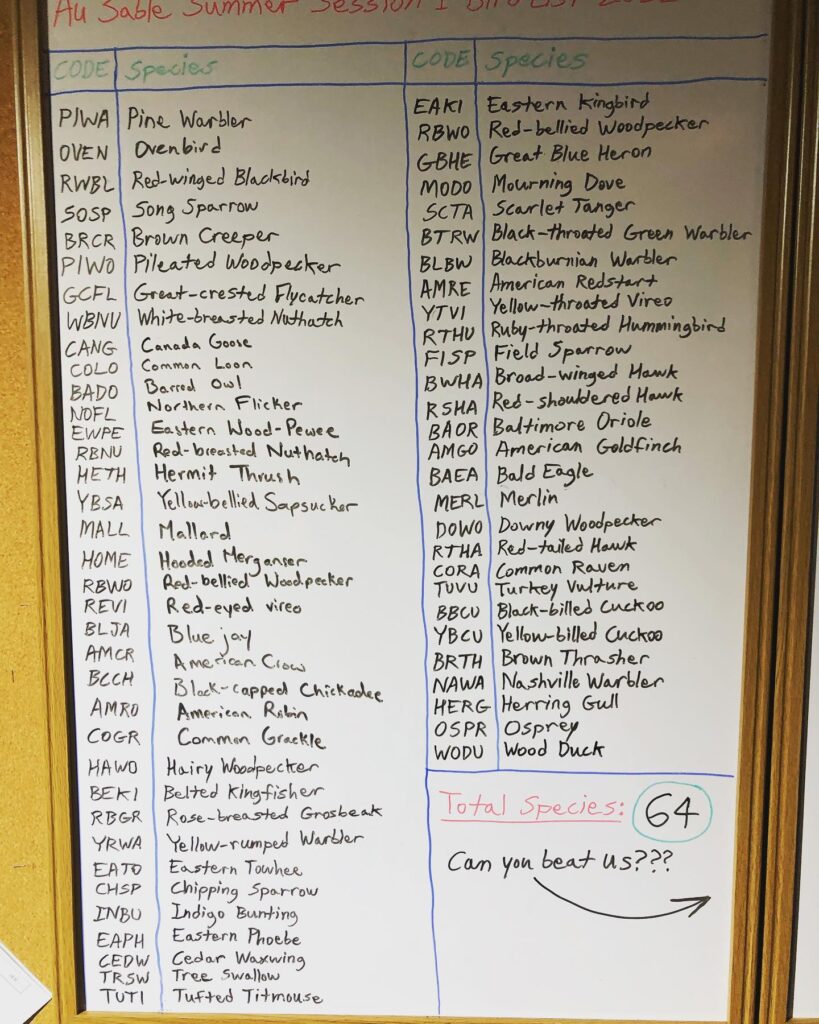 Au Sable Summer Session I Bird List
CODE Species
PIWA Pine Warbler
OVEN Ovenbird
RWBL Red-winged Blackbird
SOSP Song Sparrow
BRCR Brown Creeper
PIWO Pileated Woodpecker
GCFL Great-crested Flycatcher
WBNU White-breasted Nuthatch
CANG Canada Goose
COLO Common Loon
BADO Barred Owl
NOFL Northern Flicker
EWPE Eastern Wood-Pewee
RBNU Red-breasted Nuthatch
HETH Hermit Thrush
YBSA Yellow-bellied Sapsucker
MALL Mallard
HOME Hooded Merganser
RBWO Red-bellied Woodpecker
REVI Red-eyed vireo
BLJA Blue jay
AMCR American Crow
BCCH Black-capped Chickadee
AMRO American Robin
COGR Common Grackle
HAWO Hairy Woodpecker
BEKI Belted Kingfisher
RBGR Rose-breasted Grosbeak
YRWA Yellow-rumped Warbler
EATO Eastern Towhee
CHSP Chipping Sparrow
INBU Indigo Bunting
EAPH Eastern Phoebe
CEDW Cedar Waxwing
TRSW Tree Swallow
TUTI Tufted Titmouse
CODE Species
EAKI Eastern Kingbird
RBWO Red-bellied Woodpecker
GBHE Great Blue Heron
MODO Mourning Dove
SCTA Scarlet Tanger
BTRW Black-throated Green Warbler
BLBW Blackburnian Warbler
AMRE American Redstart
YTVI Yellow-throated Vireo
RTHU Ruby-throated Hummingbird
FISP Field Sparrow
BWHA Broad-winged Hawk
RSHA Red-shouldered Hawk
BAOR Baltimore Oriole
AMGO American Goldfinch
BAEA Bald Eagle
MERL Merlin
DOWO Downy Woodpecker
RTHA Red-tailed Hawk
CORA Common Raven
TUVU Turkey Vulture
BBCU Black-billed Cuckoo
YBCU Yellow-billed Cuckoo
BRTH Brown Thrasher
NAWA Nashville Warbler
HERG Herring Gull
OSPR Osprey
WODU Wood Duck
Total Species: 64
Can you beat us???